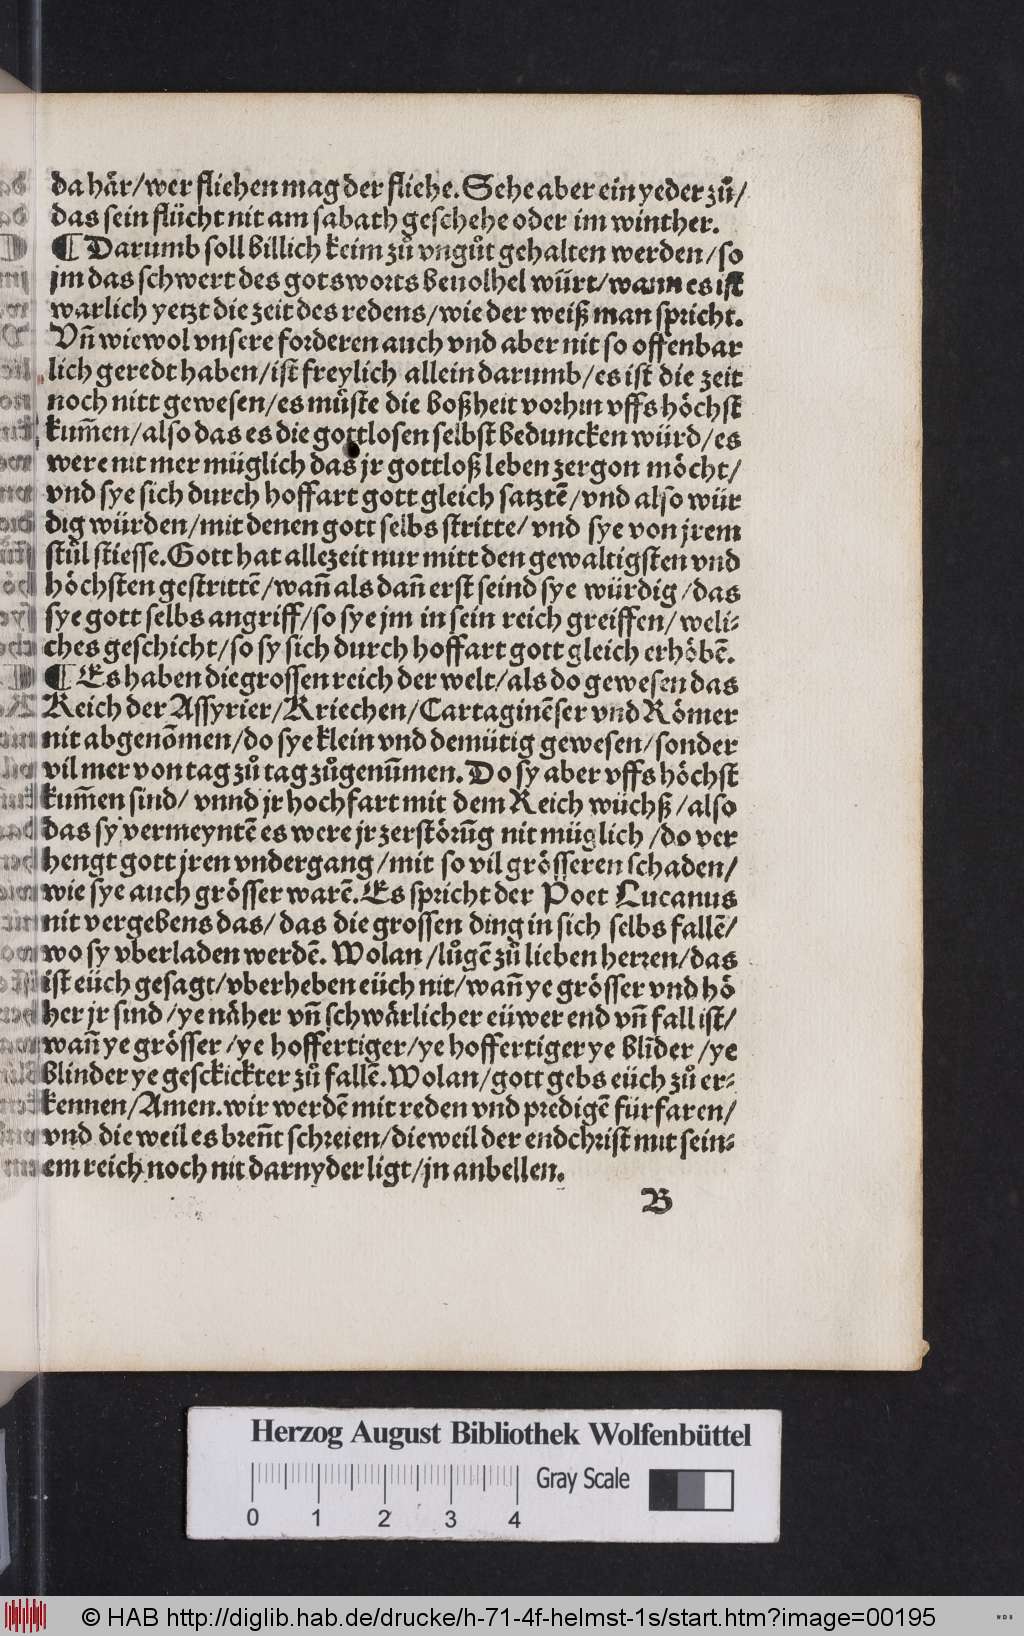 da här/wer fliehen mag der fliehe. Sehe aber ein yeder zů/
das sein flücht nit am sabath geschehe oder im winther.
¶ Darumb soll billich keim zů vngůt gehalten werden/so
jm das schwert des gotsworts beuolhel würt/wann es ist
warlich yetzt die zeit des redens/wie der weiß man spricht.
Vñ wiewol vnsere forderen auch vnd aber nit so offenbar
lich geredt haben/ist freylich allein darumb/es ist die zeit
noch nitt gewesen/es müste die boßheit vorhin vffs höchst
kum̄en/also das es die gottlosen selbst beduncken würd/es
were nit mer müglich das jr gottloß leben zergon möcht/
vnd sye sich durch hoffart gott gleich satztē/vnd also wür
dig würden/mit denen gott selbs stritte/ vnd sye von jrem
stůl stiesse. Gott hat allezeit nur mitt den gewaltigsten vnd
höchsten gestrittē/wañ als dañ erst seind sye würdig/das
sye gott selbs angriff/so sye jm in sein reich greiffen/ weli⸗
ches geschicht/so sy sich durch hoffart gott gleich erhöbē.
¶ Es haben die grossen reich der welt/als do gewesen das
Reich der Assyrier/Kriechen/Cartaginēser vnd Römer
nit abgenōmen/do sye klein vnd demütig gewesen/sonder
vil mer von tag zů tag zůgenūmen. Do sy aber vffs höchst
kum̄en sind/ vnnd jr hochfart mit dem Reich wüchß/also
das sy vermeyntē es were jr zerstörūg nit müglich/do ver
hengt gott jren vndergang/mit so vil grösseren schaden/
wie sye auch grösser warē. Es spricht der Poet Lucanus
nit vergebens das/ das die grossen ding in sich selbs fallē/
wo sy vberladen werdē. Wolan/lůgē zů lieben herren/das
ist eüch gesagt/vberheben eüch nit/wañ ye grösser vnd hö
her jr sind/ye näher vñ schwärlicher eüwer end vñ fall ist/
wañ ye grösser/ye hoffertiger/ye hoffertiger ye blīder/ye
blinder ye gesckickter zů fallē. Wolan/gott gebs eüch zů er⸗
kennen/Amen. wir werdē mit reden vnd predigē fürfaren/
vnd die weil es breñt schreien/dieweil der endchrist mit sein⸗
em reich noch nit darnyder ligt/jn anbellen.
B
Herzog August Bibliothek Wolfenbüttel
Gray Scale
0 1 2 3 4
© HAB http://diglib.hab.de/drucke/h-71-4f-helmst-1s/start.htm?image=00195